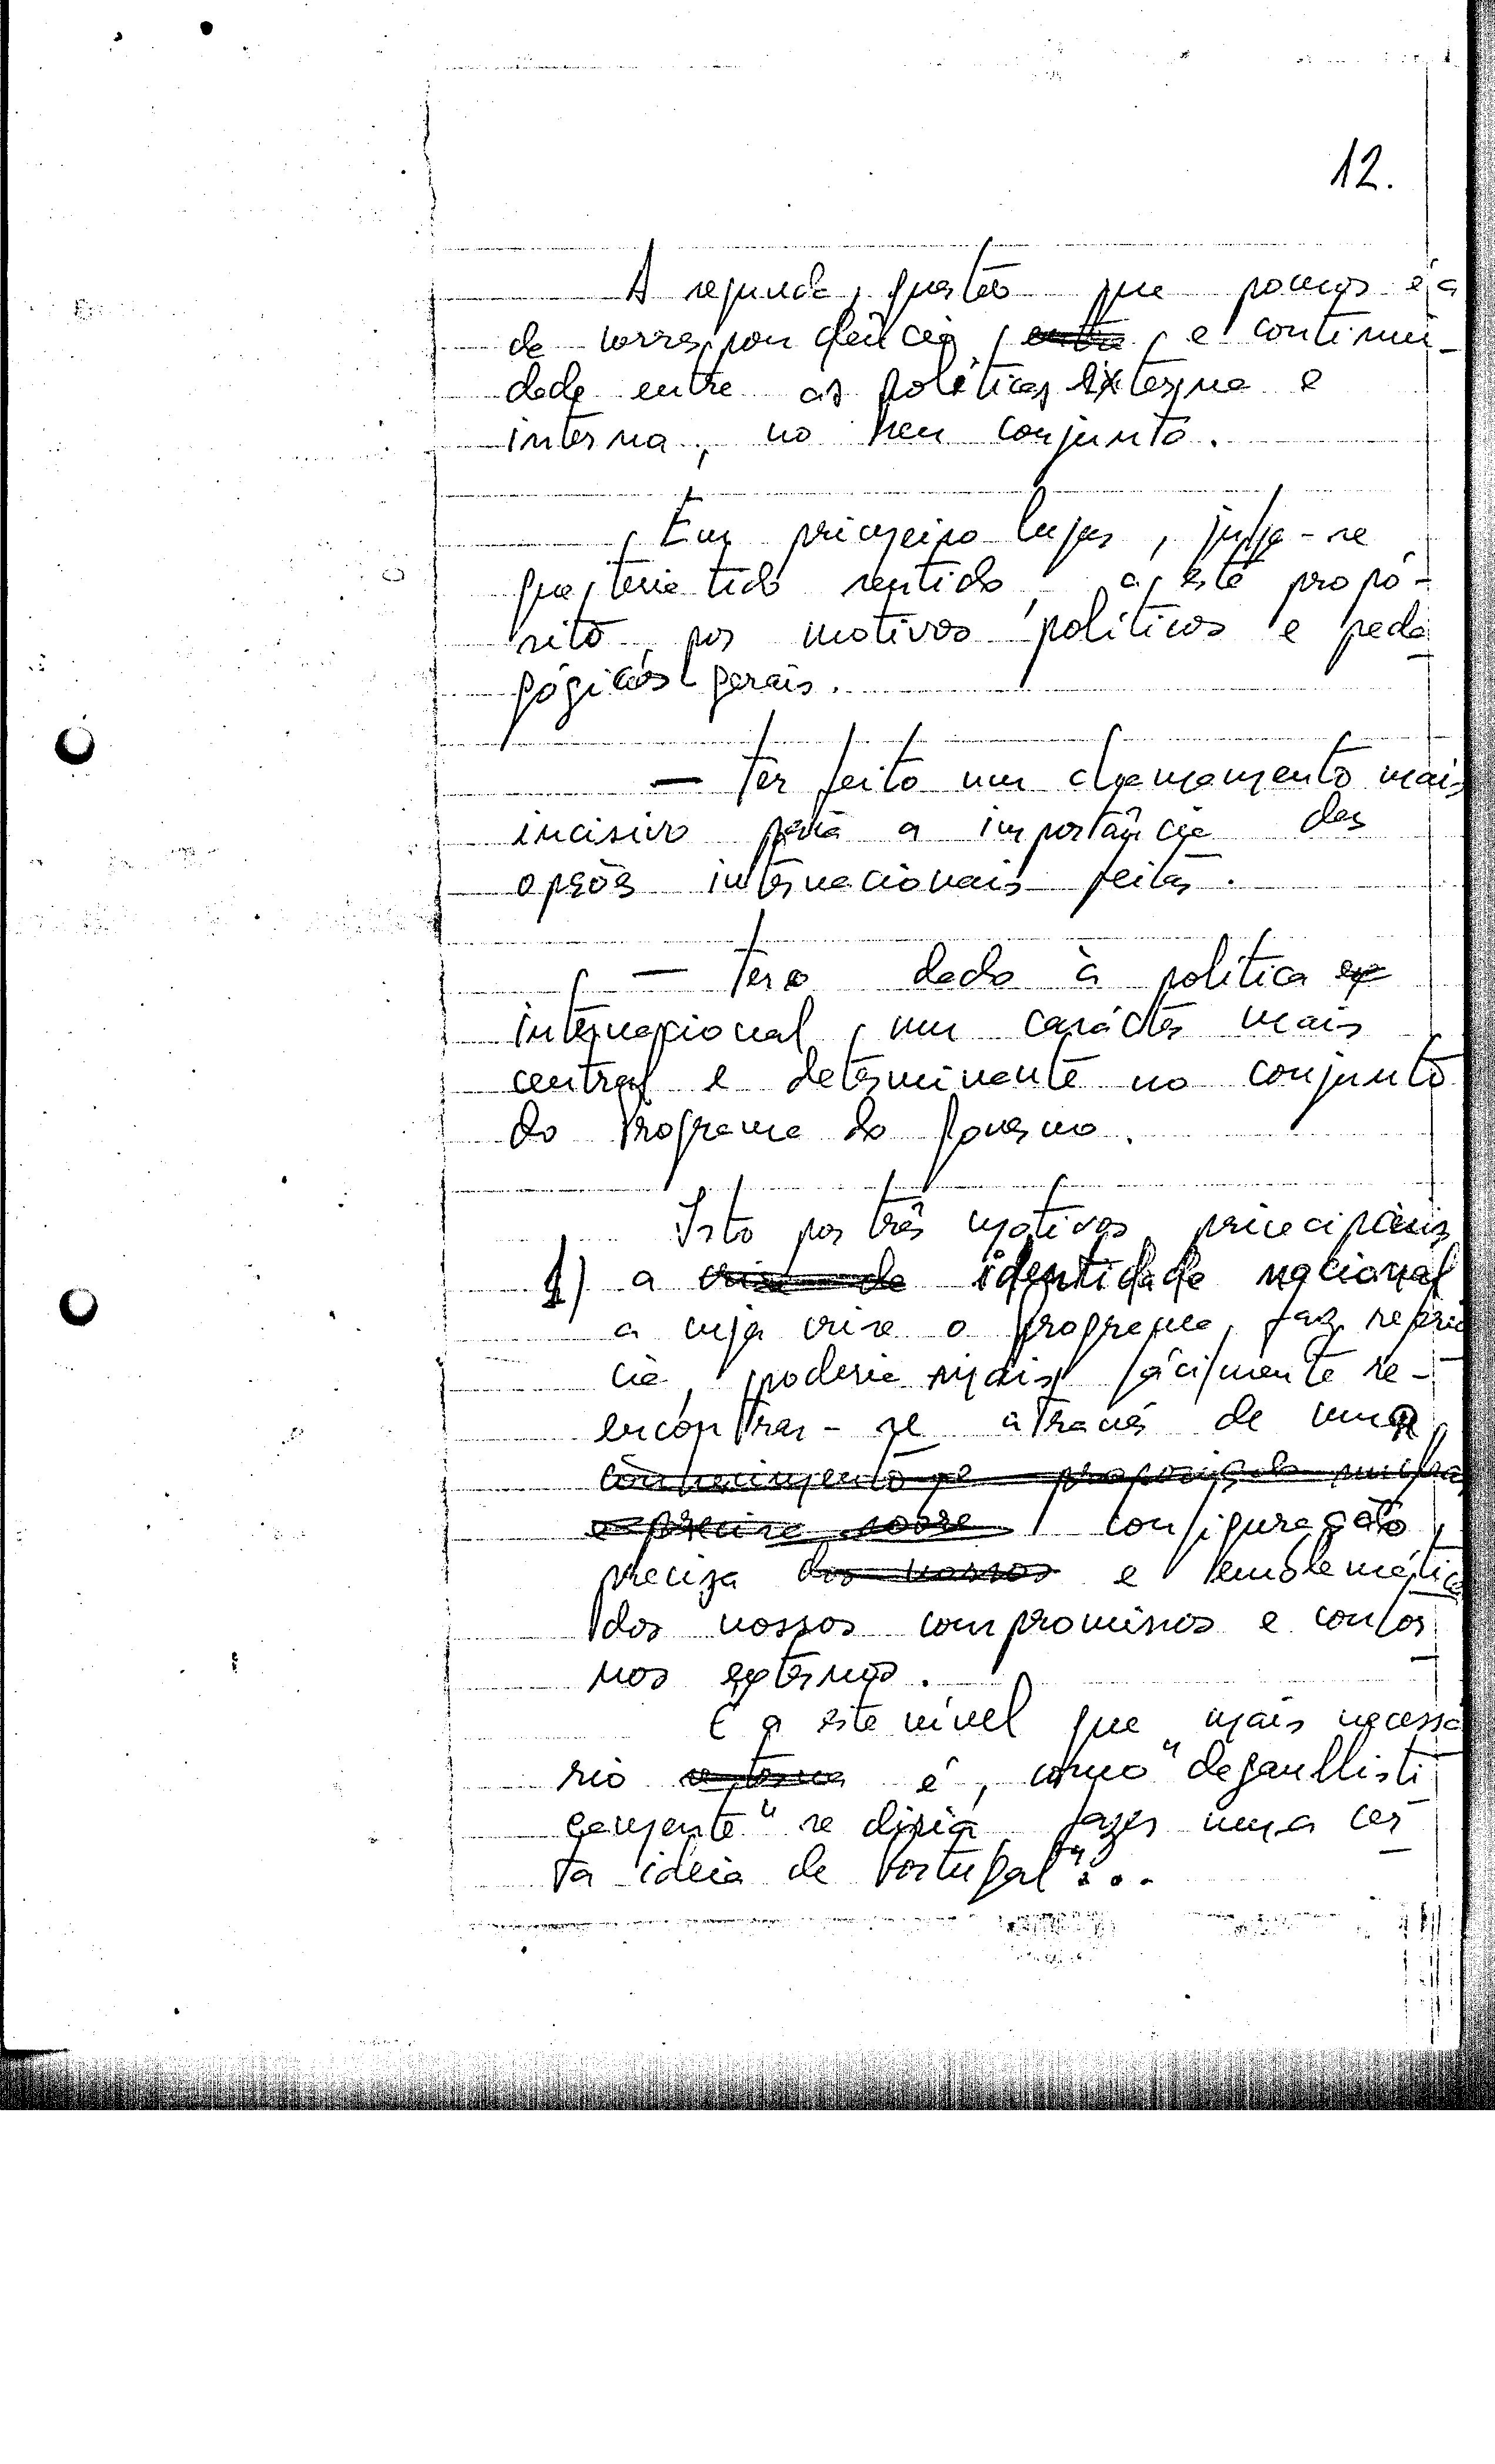 12.
A segunda questão que pomos é a
de correspondência entre e continui-
dade entre as políticas externa e
interna, no seu conjunto.
Em primeiro lugar, julga-se
que teria tido sentido, a este propó-
sito, por motivos políticos e peda
gógicos gerais.
— ter feito um chamamento mais
incisivo para a importância das
opções internacionais feitas.
— ter dado à política
internacional um carácter mais
central e determinante no conjunto
do Programa do Governo.
Isto por três motivos principais
1) a crise de identidade nacional
a cuja crise o programa faz referên
cia, poderia mais facilmente re-
encontrar-se através de uma
configuração
precisa dos nossos e emblemática
dos nossos compromissos e contor
nos externos.
É a este nível que mais necessá
rio é, como "degaullisti
camente" se diria fazer uma cer
ta ideia de Portugal"...